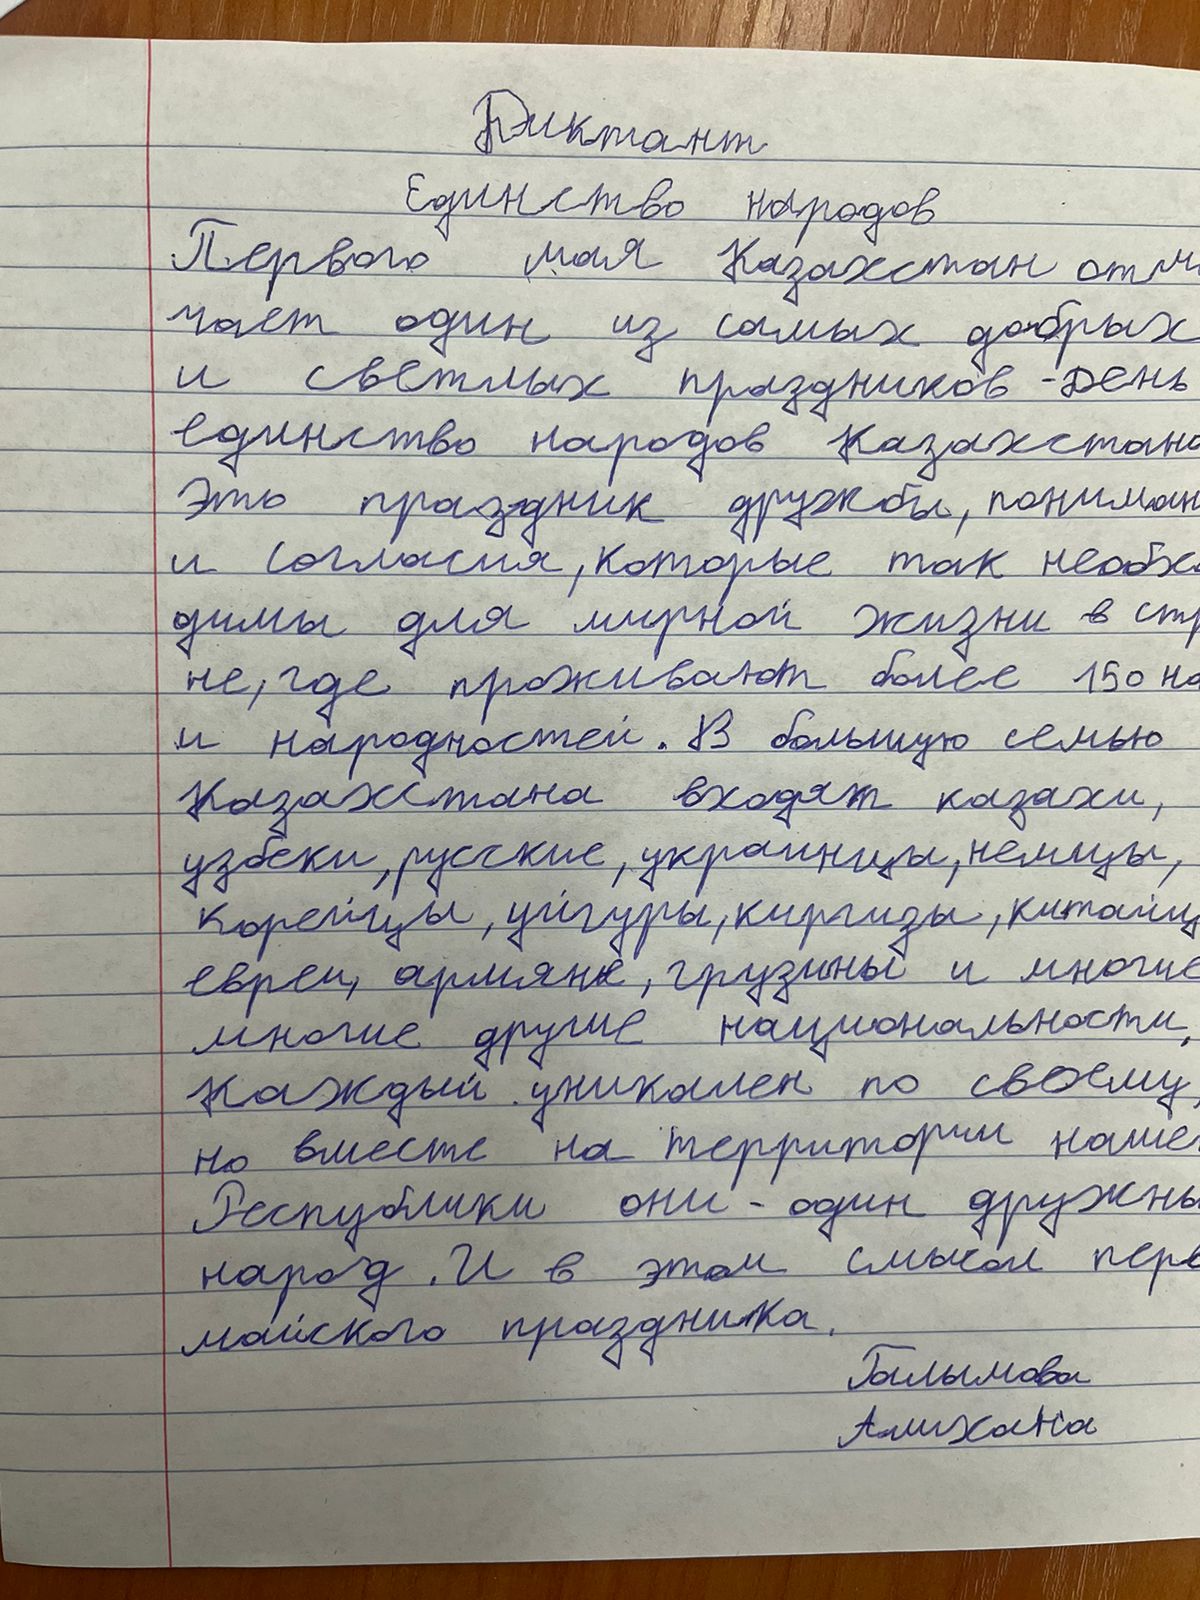 Диктант
Единство народов
Первого мая Казахстан отме
чает один из самых добрых
и светлых праздников - День
единство народов Казахстана
Это праздник дружбы, пониман
и согласия, которые так необхо
димы для мирной жизни в стр
не, где проживают более 150 на
и народностей. В большую семью
Казахстана входят казахи,
узбеки, русские, украинцы, немцы,
корейцы, уйгуры, киргизы, китайц
евреи, армяне, грузины и многие
многие другие национальности,
Каждый уникален по своему,
но вместе на территории наше
Республики они - один дружны
народ. И в этом смысл перв
майского праздника.
Галымова
Алихана